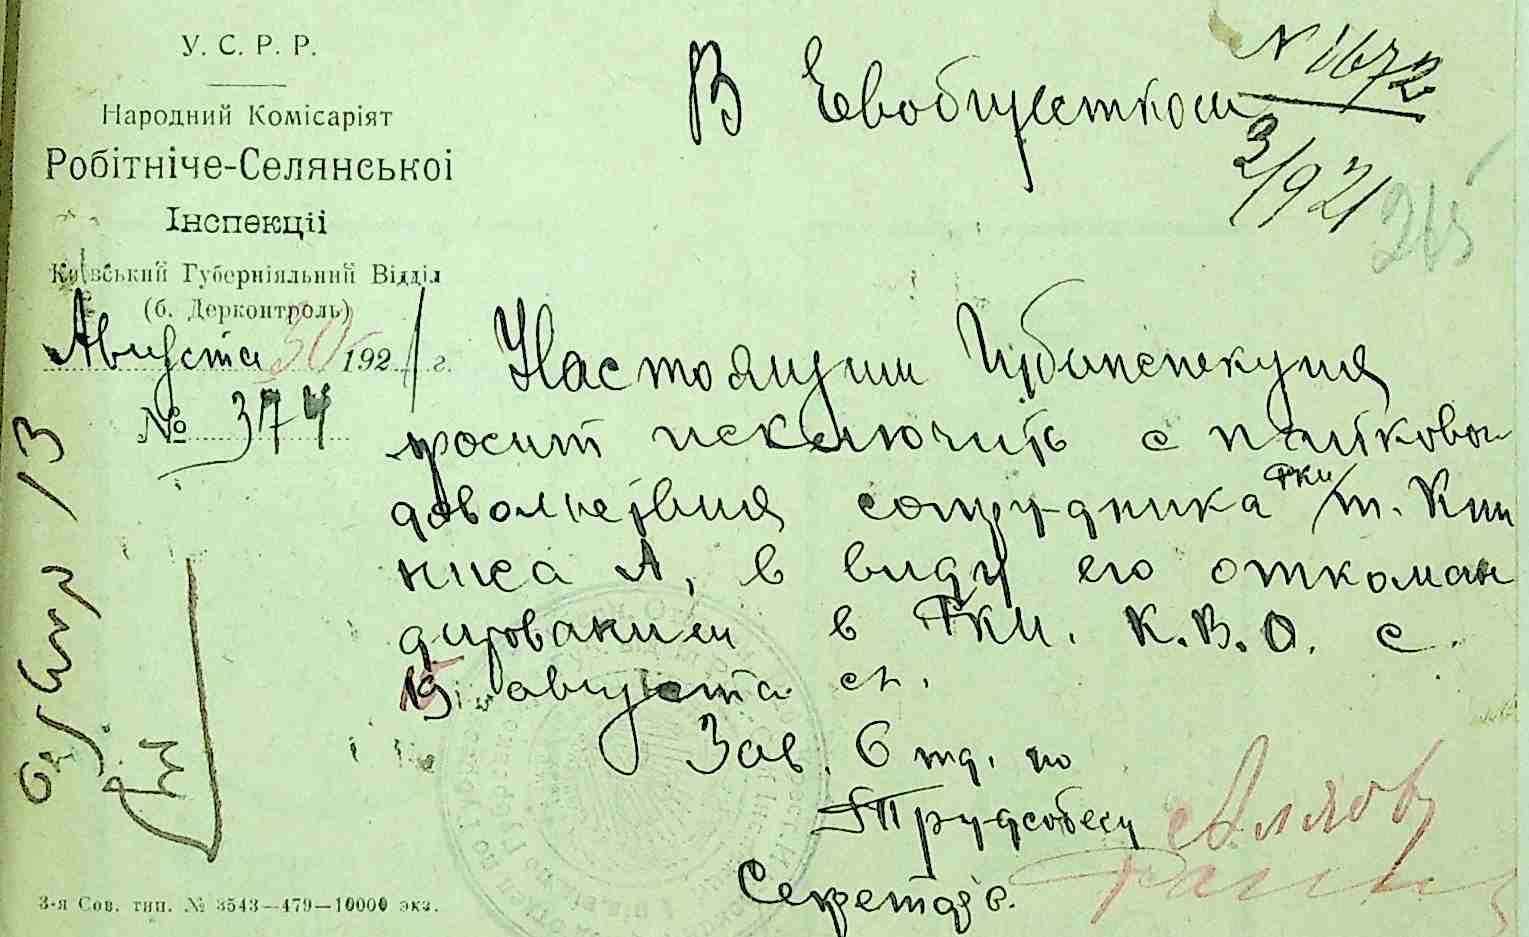 У. С. Р. Р.
Народний Комісаріят
Робітніче-Селянської
Інспекції
Київський Губерніяльний Відділ
(б. Дерконтроль)
Августа 30 1921 г.
№ 374
В Евобщестком
N 1672
3/9 21
215
Настоящим
просит исключить с пайкового
довольствия сотрудника РКИ т. Кип
ниса А, в виду его откоман
дированием в РКИ. К.В.О. с
15 августа сг.
Зав. Отд. по
Трудсобесу
Секретарь.
3-я Сов. тип. № 3543—479—10000 экз.